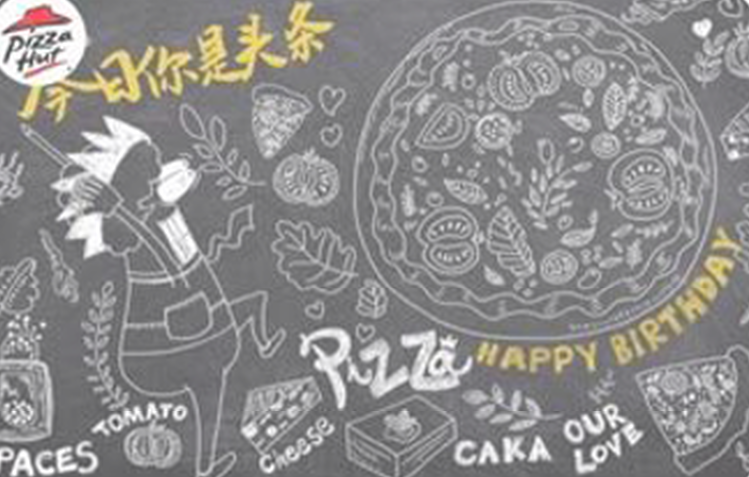 Pizza
Hut
今日你是头条
Pizza
HAPPY BIRTHDAY
TOMATO
Cheese
PACES
CAKA
OUR
LOVE